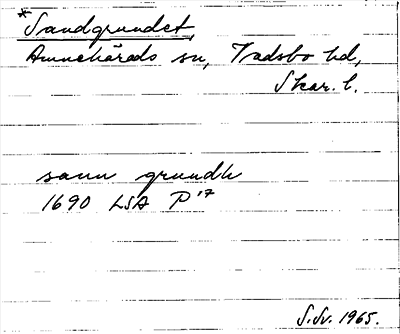 *Sandgrundet,
Amnehärads sn, Vadsbo hd,
Skar. l.
sann grundh
1690 LSA P¹⁷
S.Sv. 1965.